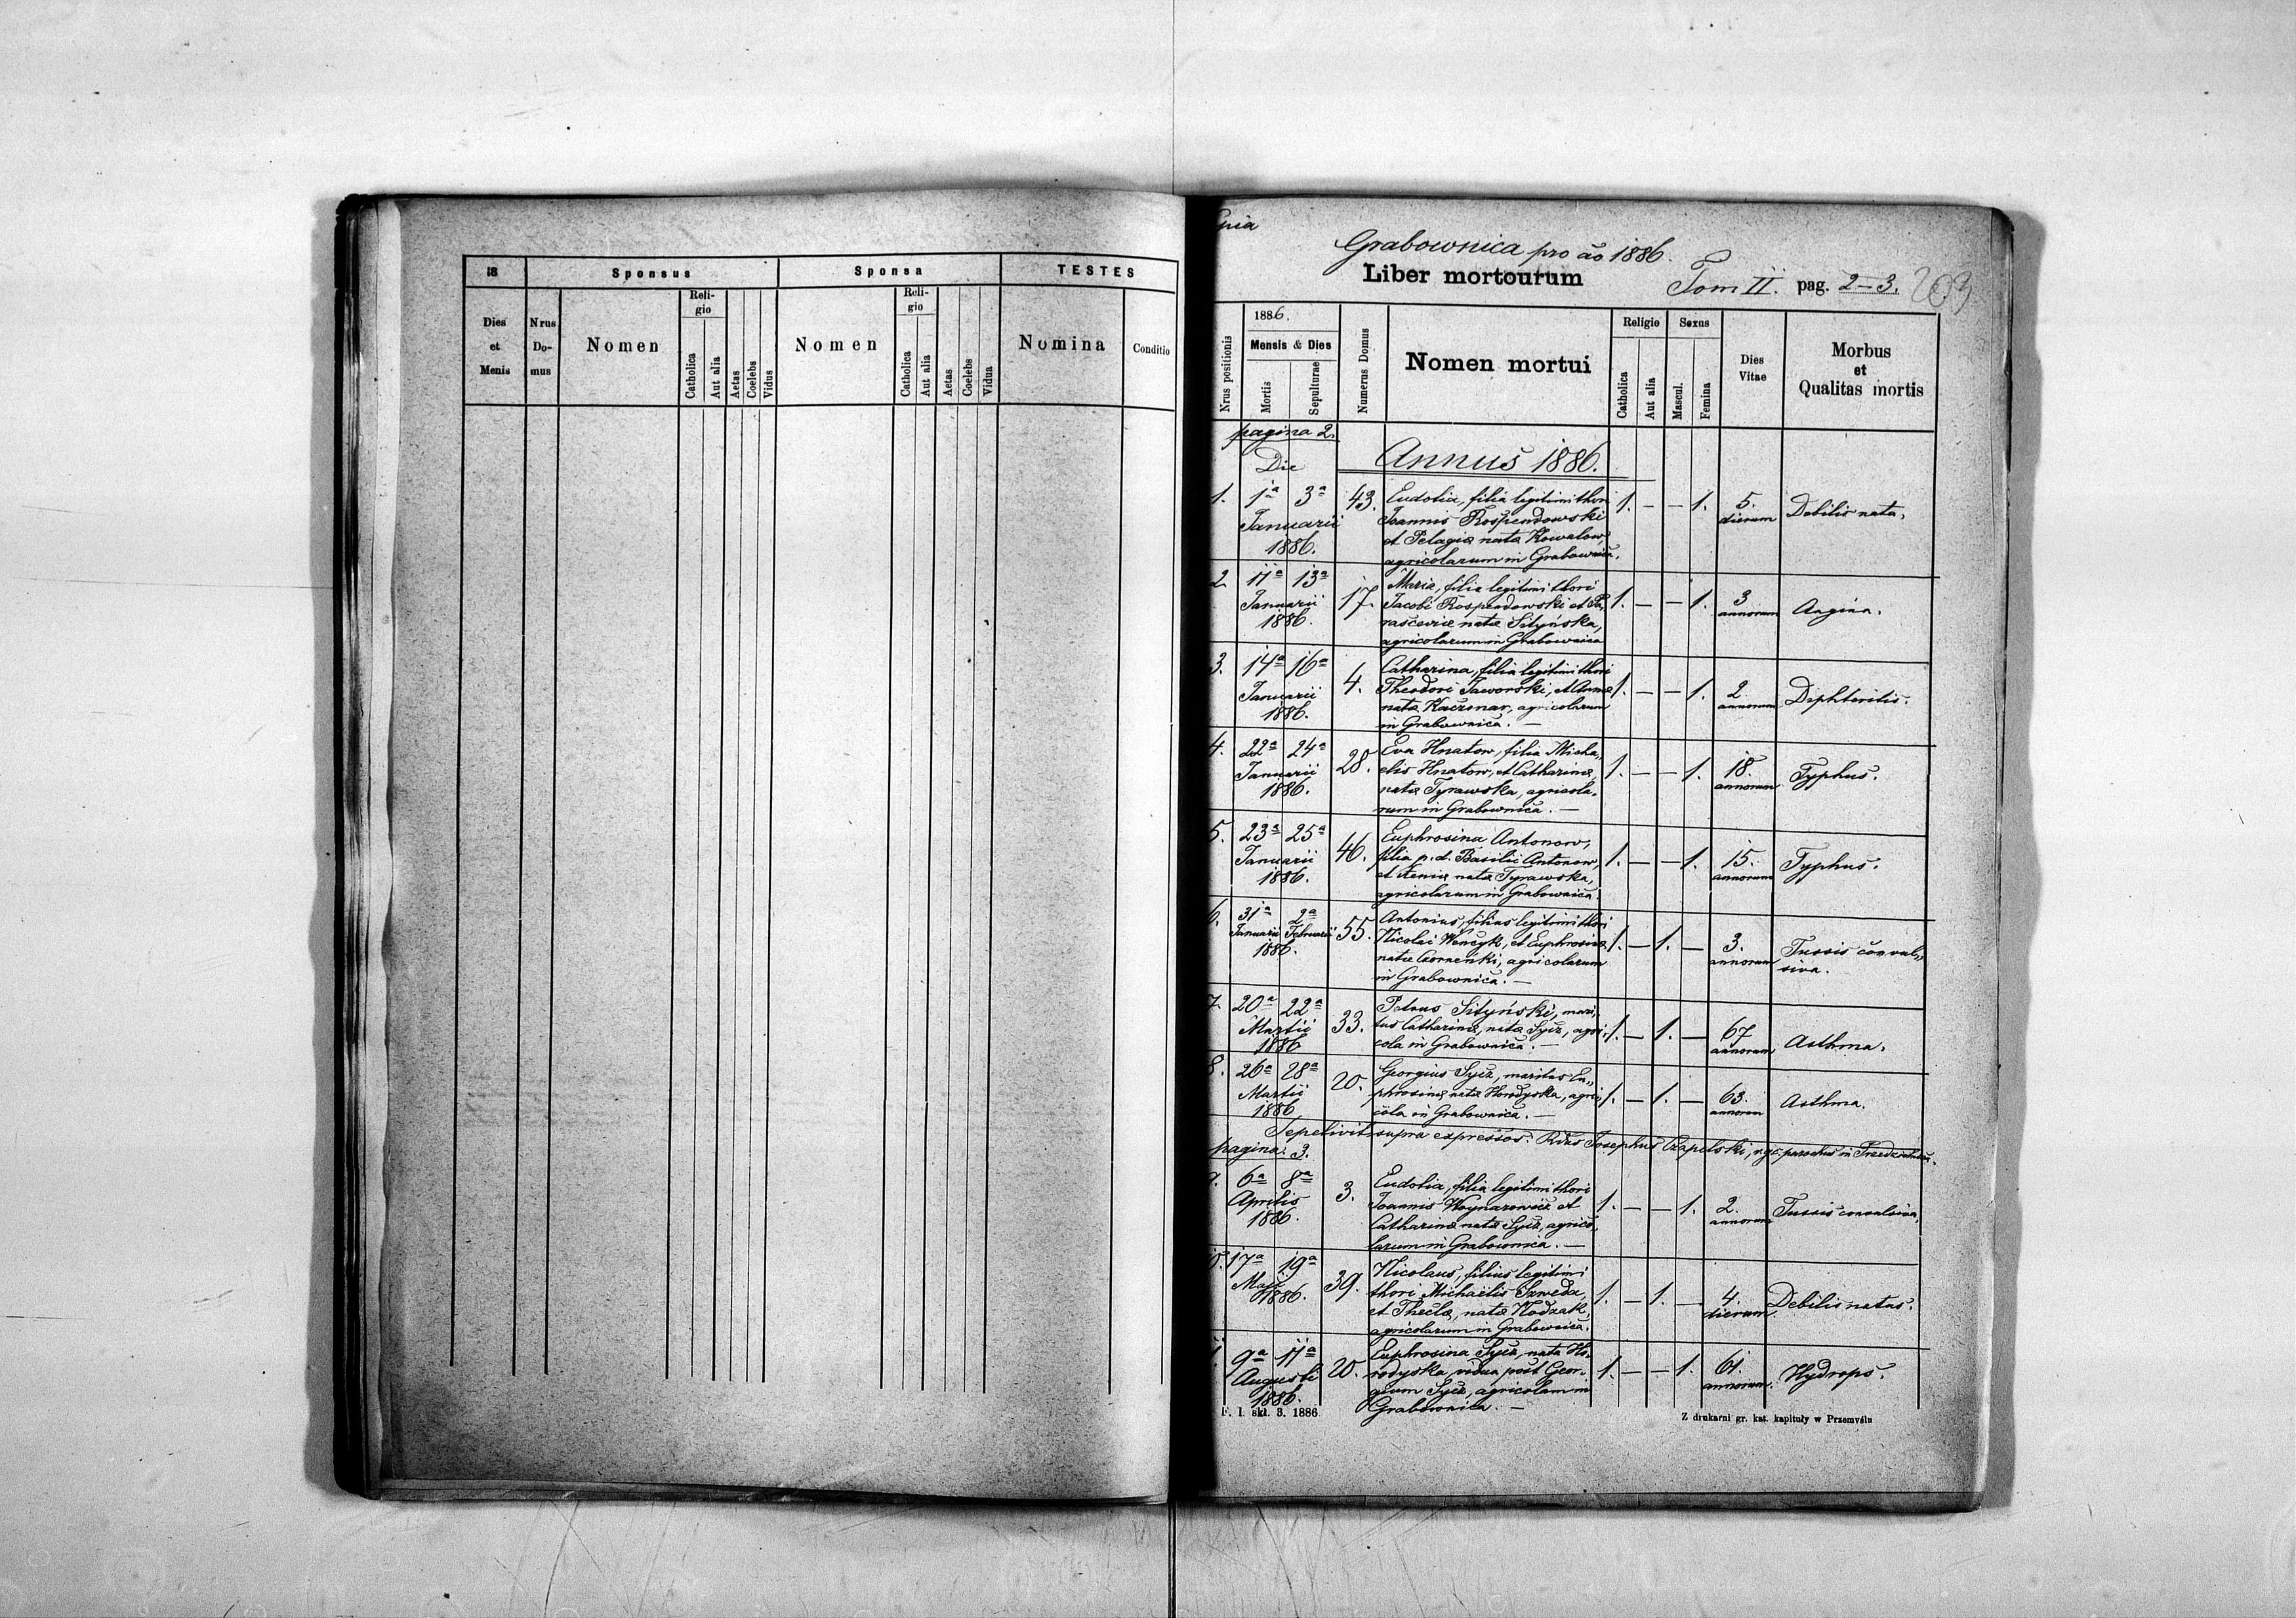 18 Sponsus Sponsa TESTES
Dies et Menis Nrus Do- mus Nomen Reli- gio Catholica Aut alia Aetas Coelebs Vidus Nomen Reli- gio Catholica Aut alia Aetas Coelebs Vidua Nomina Conditio
Grabownica pro ao 1886.
Liber mortourum Tom II. pag. 2–3. 203
Nrus positionis 1886. Mensis & Dies Mortis Sepulturae Numerus Domus Nomen mortui Religio Catholica Aut alia Sexus Mascul. Femina Dies Vitae Morbus et Qualitas mortis
pagina 2.
Die Annus 1886.
1. 1a 3a 43. Eudotia, filia legitimi thori 1. — — 1. 5. Debilis nata.
Januarii Joannis Rospendowski dierum
1886. et Pelagiæ natæ Kowalow,
agricolarum in Grabownica.
2. 11a 13a 17. Maria, filia legitimi thori 1. — — 1. 3 Angina.
Januarii Jacobi Rospendowski et Pa, annorum
1886. rasceviæ natæ Sityńska,
agricolarum in Grabownica
3. 14a 16a 4. Catharina, filia legitimi thori 1. — — 1. 2 Diphteritis.
Januarii Theodori Jaworski, et Annæ annorum
1886. natæ Kaczmar, agricolarum
in Grabownica. —
4. 22a 24a 28. Eva Hnatow, filia Micha, 1. — — 1. 18. Typhus.
Januarii elis Hnatow, et Catharinæ, annorum
1886. natæ Tyrawska, agricola,
rum in Grabownica. —
5. 23a 25a 46. Euphrosina Antonow, 1. — — 1. 15. Typhus.
Januarii filia p. d. Basilii Antonow, annorum
1886. et Xeniæ natæ Tyrawska,
agricolarum in Grabownica.
6. 31a 2a 55. Antonius, filius legitimi thori 1. — 1. — 3. Tussis convul,,
Januarii Februarii Nicolai et Euphrosinæ annorum siva.
1886. natæ agricolarum
in Grabownica. —
7. 20a 22a 33. Petrus Sityński, mari, 1. — 1. — 67 Asthma.
Martii tus Catharinæ, natæ Sycz, agri, annorum
1886 cola in Grabownica. —
8. 26a 28a 20. Georgius Sycz, maritus Eu,, 1. — 1. — 63. Asthma.
Martii phrosinæ natæ Horodyska, agri annorum
1886 cola in Grabownica. —
Sepelivit supra expressos: Rdus Josephus Czapelski, r. gc. parochus in
pagina. 3.
9. 6a 8a 3. Eudotia, filia legitimi thori 1. — — 1. 2. Tussis convulsiva,
Aprilis Joannis Woynarowicz et annorum
1886. Catharinæ natæ Sycz, agrico,
larum in Grabownica. —
10. 17a 19a 39. Nicolaus, filius legitimi 1. — 1. — 4. Debilis natus.
Maji thori Michaëlis Szweda, dierum.
1886. et Theclæ, natæ
agricolarum in Grabownica.
11. 9a 11a 20. Euphrosina Sycz, nata Ho, 1. — — 1. 61. Hydrops.
Augusti rodyska, vidua post Geor, annorum.
1886. gium Sycz, agricolam in
Grabownica. —
F. I. skł. 3. 1886 Z drukarni gr. kat. kapituły w Przemyślu